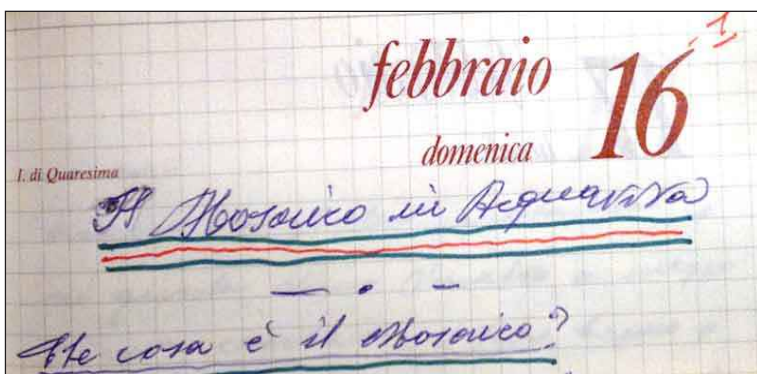 febbraio 16 - 1
domenica
I. di Quaresima
Il Mosaico in Acquaviva
— • —
Che cosa è il Mosaico?